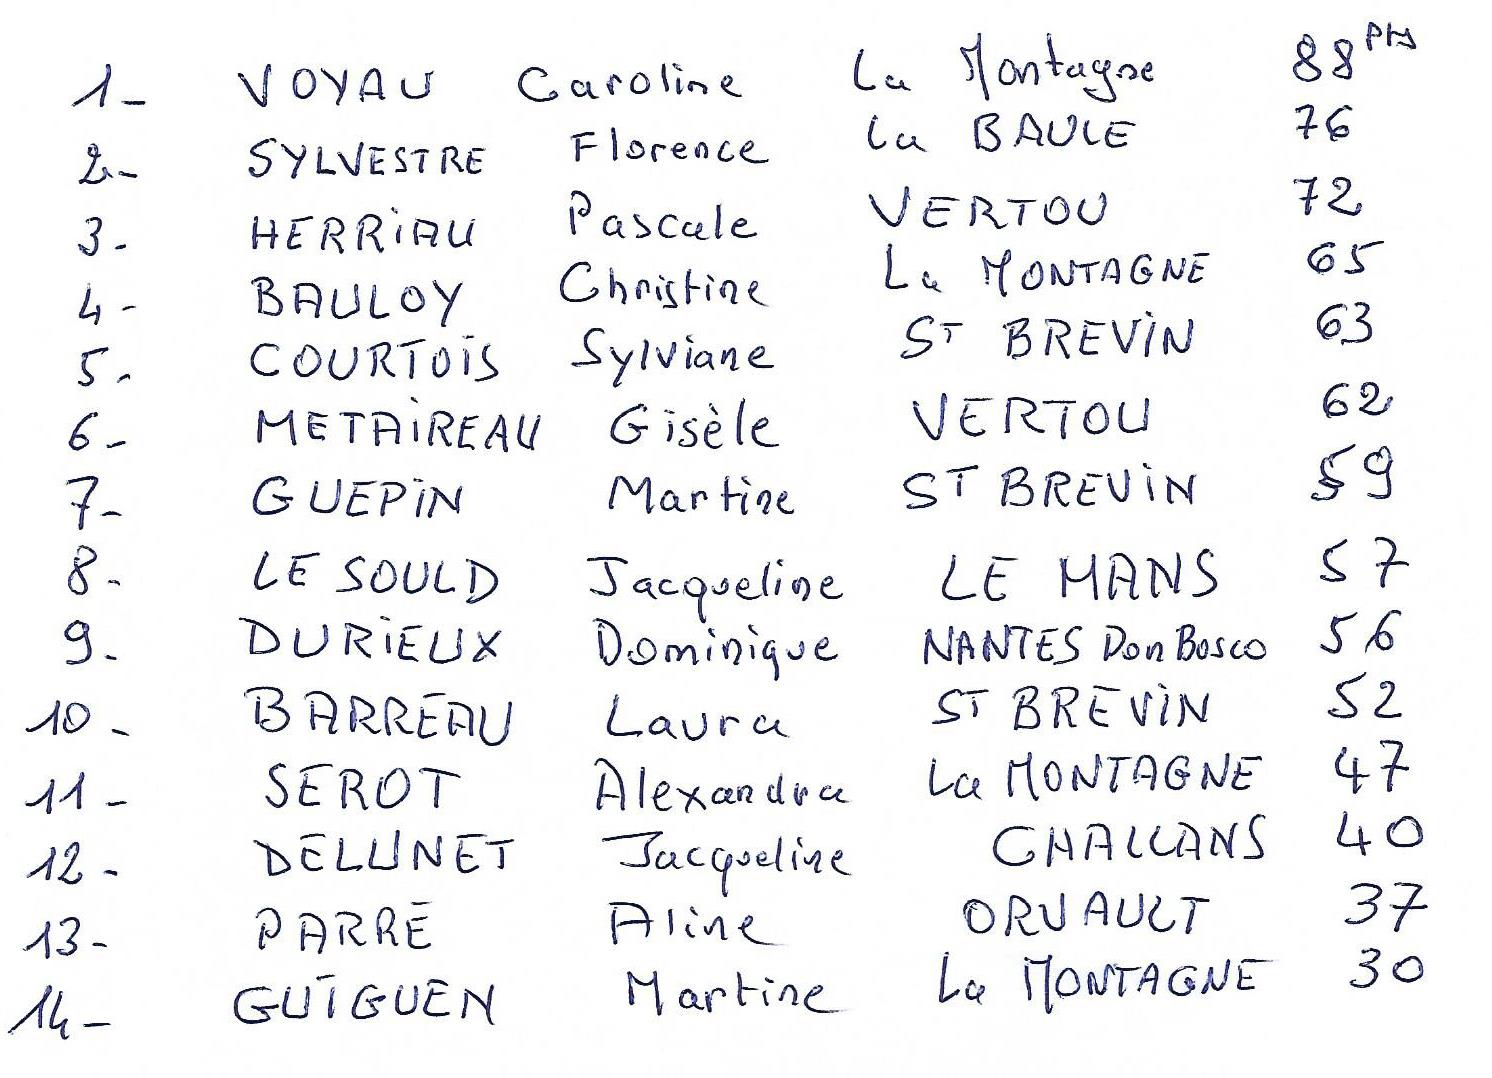 1- VOYAU Caroline La Montagne 88 pts
2- SYLVESTRE Florence La BAULE 76
3- HERRIAU Pascale VERTOU 72
4- BAULOY Christine La MONTAGNE 65
5- COURTOIS Sylviane ST BREVIN 63
6- METAIREAU Gisèle VERTOU 62
7- GUEPIN Martine ST BREVIN 59
8- LE SOULD Jacqueline LE MANS 57
9- DURIEUX Dominique NANTES Don Bosco 56
10- BARREAU Laura ST BREVIN 52
11- SEROT Alexandra La MONTAGNE 47
12- DELUNET Jacqueline CHALLANS 40
13- PARRE Aline ORVAULT 37
14- GUIGUEN Martine La MONTAGNE 30